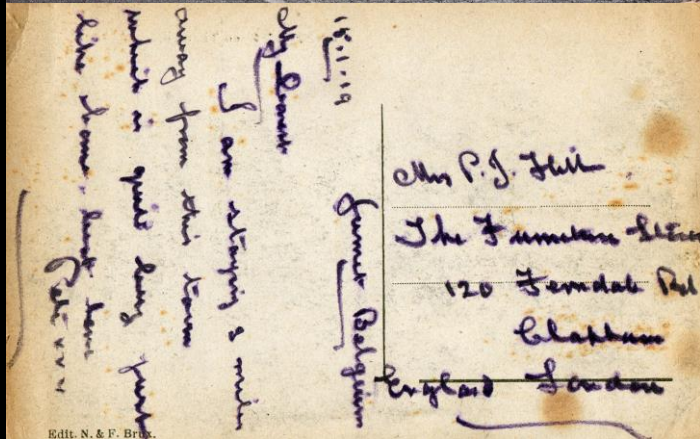 15.1.19
Jumet Belgium
My Dearest
I am staying 3 miles
away from this town
which is quite busy just
like home. best love
Pete xxx
Mrs P. J. Hill
The Furniture Stores
120 Ferndale Rd
Clapham
England London
Edit. N. & F. Brux.